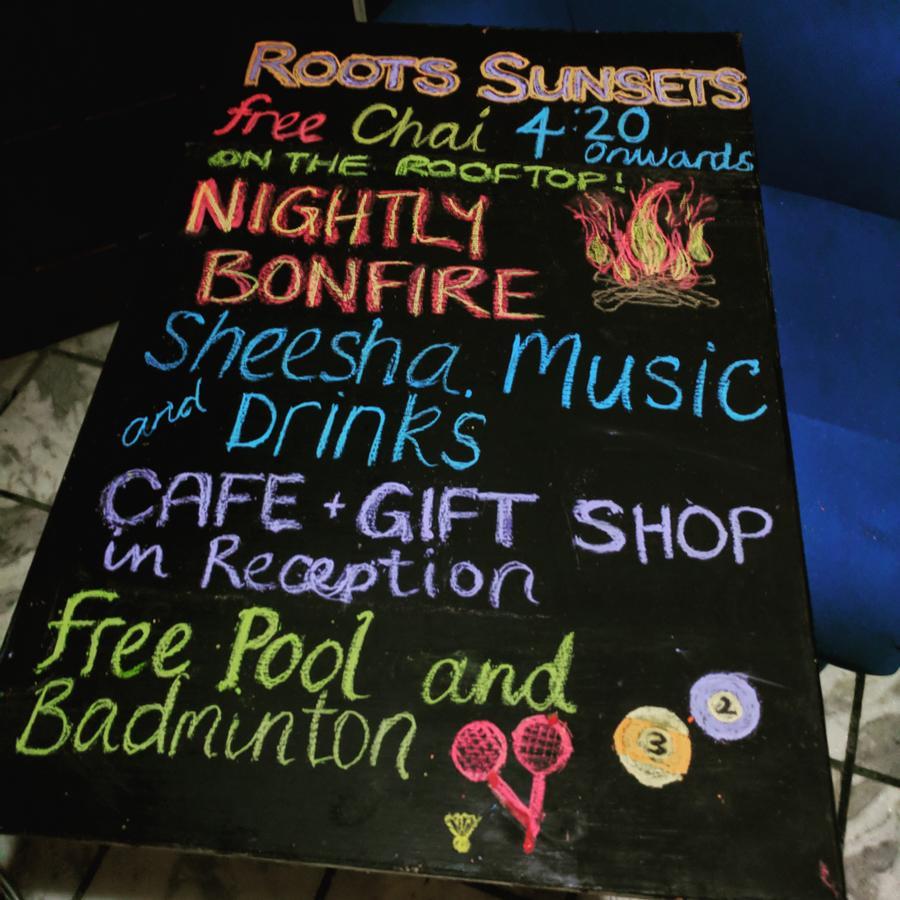 ROOTS SUNSETS
free Chai 4:20
onwards
ON THE ROOFTOP!
NIGHTLY
BONFIRE
Sheesha. Music
and Drinks
CAFE + GIFT SHOP
in Reception
free Pool and
Badminton
2
3